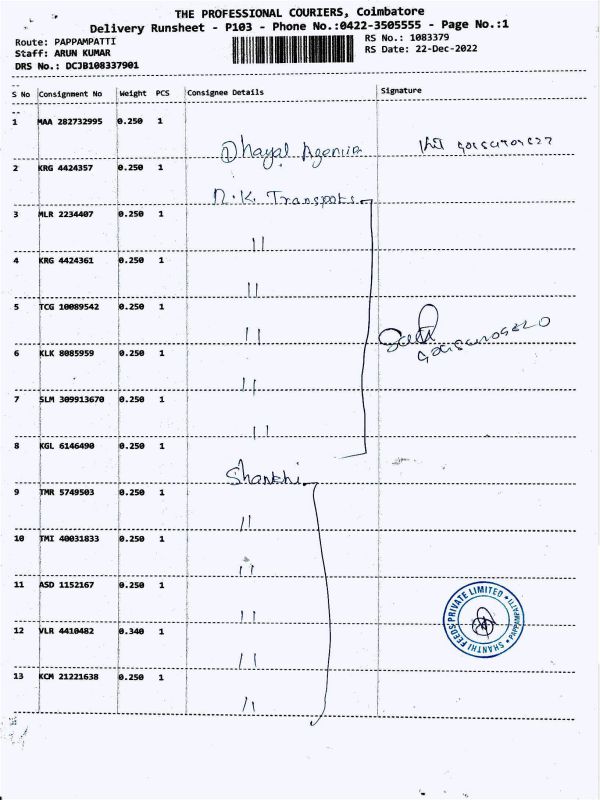 THE PROFESSIONAL COURIERS, Coimbatore
Delivery Runsheet - P103 - Phone No.:0422-3505555 - Page No.:1
Route: PAPPAMPATTI
RS No.: 1083379
Staff: ARUN KUMAR
RS Date: 22-Dec-2022
DRS No.: DCJB108337901
S No Consignment No Weight PCS Consignee Details Signature
1 MAA 282732995 0.250 1
Dhayal Agencies
2 KRG 4424357 0.250 1
N.K. Transports
3 MLR 2234407 0.250 1
"
4 KRG 4424361 0.250 1
"
5 TCG 10089542 0.250 1
"
6 KLK 8085959 0.250 1
"
7 SLM 309913670 0.250 1
"
8 KGL 6146490 0.250 1
Shanthi
9 TMR 5749503 0.250 1
"
10 TMI 40031833 0.250 1
"
11 ASD 1152167 0.250 1
"
12 VLR 4410482 0.340 1
"
13 KCM 21221638 0.250 1
"
SHANTHI FEEDS PRIVATE LIMITED * PAPPAMPATTI *